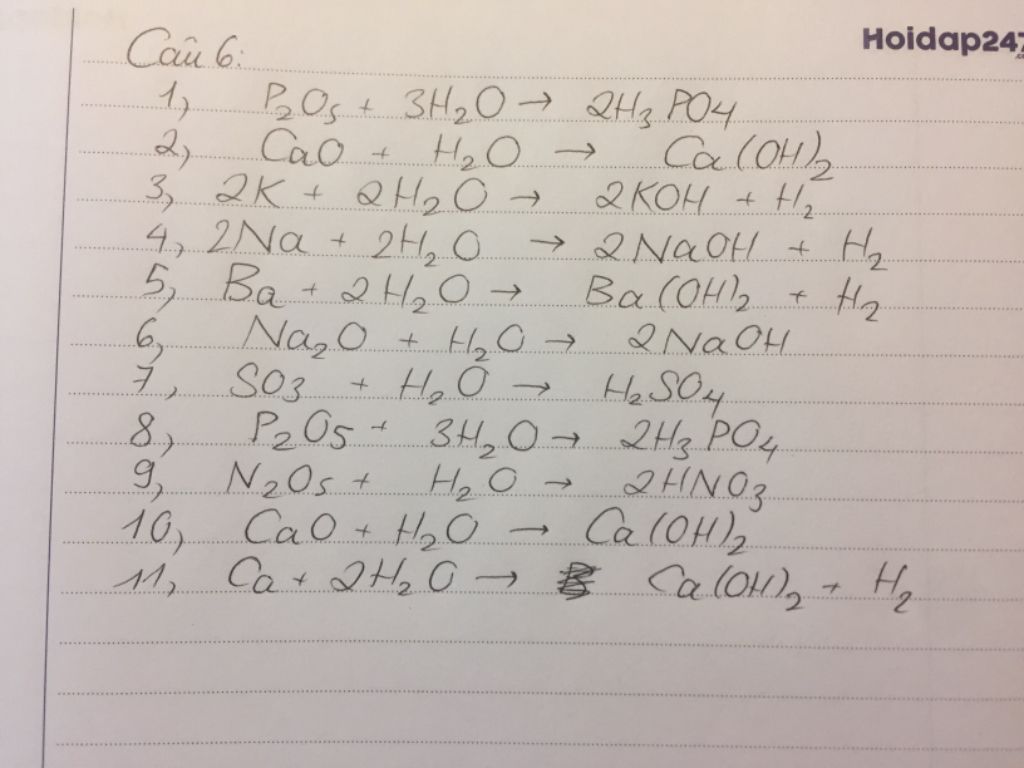 Hoidap247
Câu 6:
1, P₂O₅ + 3H₂O → 2H₃PO₄
2, CaO + H₂O → Ca(OH)₂
3, 2K + 2H₂O → 2KOH + H₂
4, 2Na + 2H₂O → 2NaOH + H₂
5, Ba + 2H₂O → Ba(OH)₂ + H₂
6, Na₂O + H₂O → 2NaOH
7, SO₃ + H₂O → H₂SO₄
8, P₂O₅ + 3H₂O → 2H₃PO₄
9, N₂O₅ + H₂O → 2HNO₃
10, CaO + H₂O → Ca(OH)₂
11, Ca + 2H₂O → Ca(OH)₂ + H₂